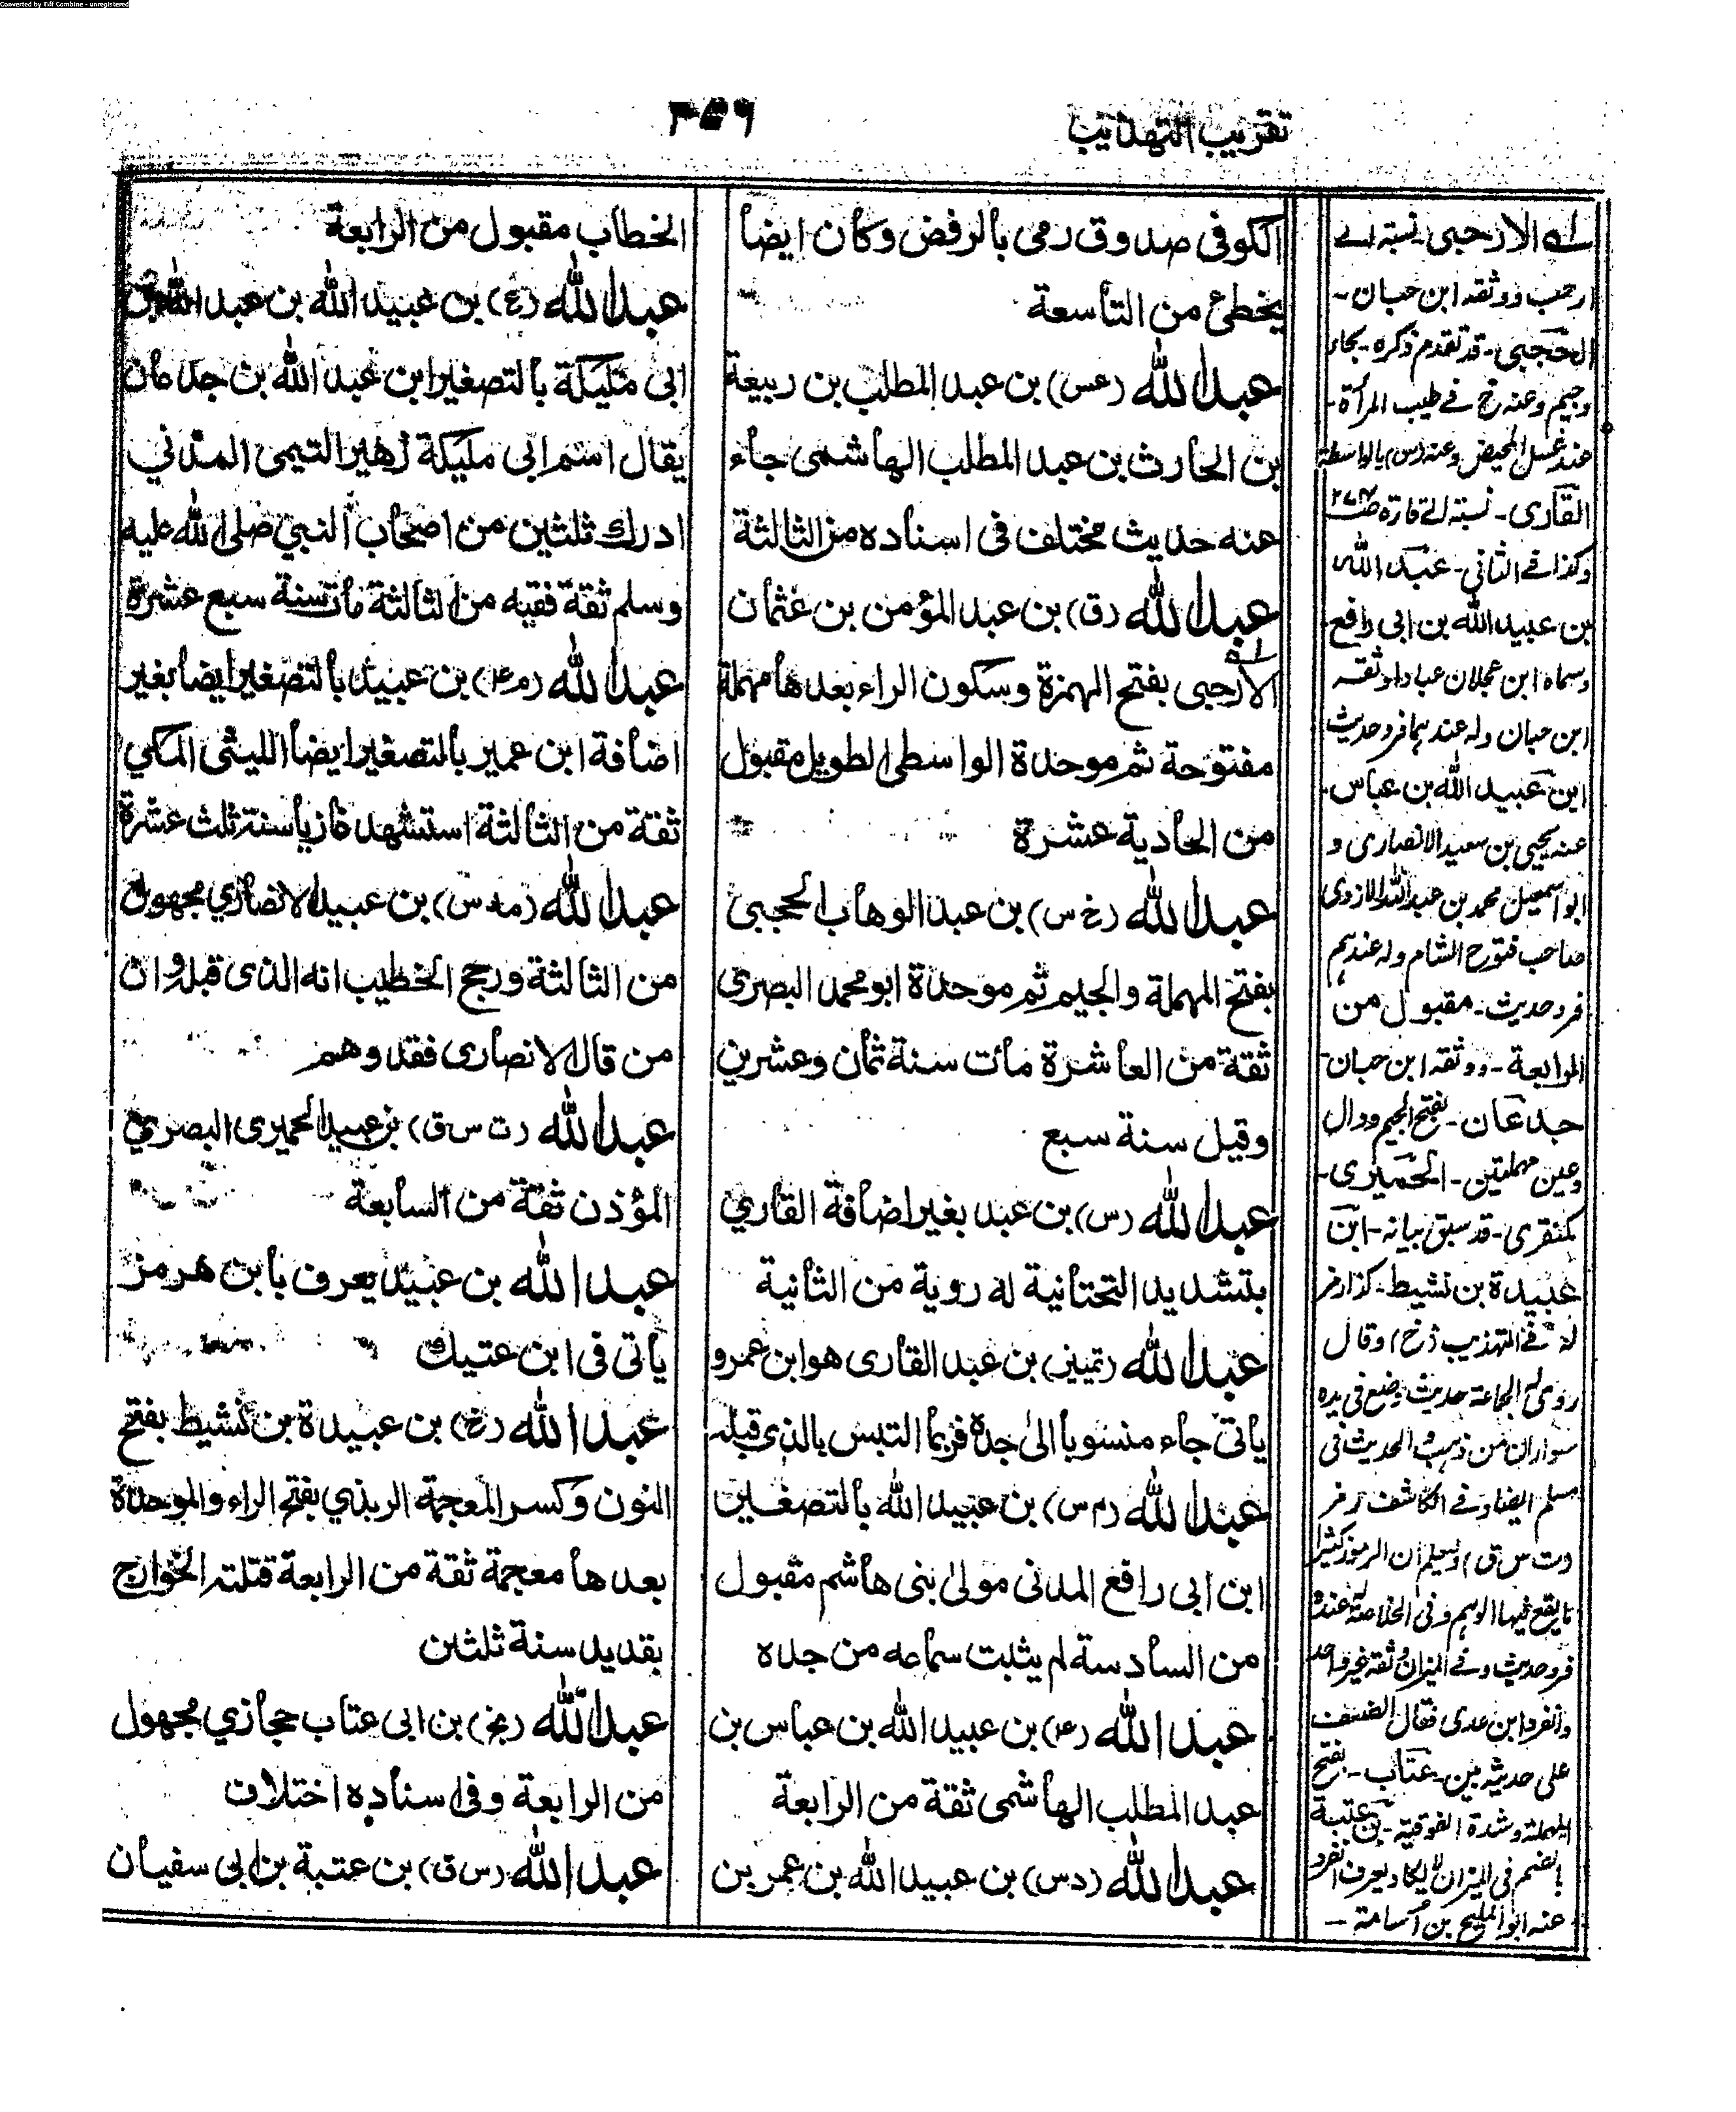 Converted by Tiff Combine - unregistered
تقريب التهذيب
٣٥٩
الكوفي صدوق رمى بالرفض وكان ايضا
يخطئ من التاسعة
عبد الله (عس) بن عبد المطلب بن ربيعة
بن الحارث بن عبد المطلب الهاشمى جاء
عنه حديث مختلف فى اسناده من الثالثة
عبد الله (ق) بن عبد المؤمن بن عثمان
الارحبى بفتح الهمزة وسكون الراء بعدها مهملة
مفتوحة ثم موحدة الواسطى الطويل مقبول
من الحادية عشرة
عبد الله (خ س) بن عبد الوهاب الحجبى
بفتح المهملة والجيم ثم موحدة ابو محمد البصرى
ثقة من العاشرة مات سنة ثمان وعشرين
وقيل سنة سبع
عبد الله (س) بن عبد بغير اضافة القاري
بتشديد التحتانية له روية من الثانية
عبد الله (تمييز) بن عبد القارى هو ابن عمرو
ياتى جاء منسوبا الى جده فربما التبس بالذى قبله
عبد الله (م س) بن عبيد الله بالتصغير
ابن ابى رافع المدنى مولى بنى هاشم مقبول
من السادسة لم يثبت سماعه من جده
عبد الله (ع) بن عبيد الله بن عباس بن
عبد المطلب الهاشمى ثقة من الرابعة
عبد الله (د س) بن عبيد الله بن عمر بن
الخطاب مقبول من الرابعة
عبد الله (ع) بن عبيد الله بن عبد الله بن
ابى مليكة بالتصغير ابن عبد الله بن جدعان
يقال اسم ابى مليكة زهير التيمى المدني
ادرك ثلثين من اصحاب النبي صلى الله عليه
وسلم ثقة فقيه من الثالثة مات سنة سبع عشرة
عبد الله (م ع) بن عبيد بالتصغير ايضا بغير
اضافة ابن عمير بالتصغير ايضا الليثى المكي
ثقة من الثالثة استشهد غازيا سنة ثلث عشرة
عبد الله (مد س) بن عبيد الانصاري مجهول
من الثالثة ورجح الخطيب انه الذى قبله وان
من قال الانصارى فقد وهم
عبد الله (ت س ق) بن عبيد الحميرى البصري
المؤذن ثقة من السابعة
عبد الله بن عبيد يعرف بابن هرمز
ياتى فى ابن عتيك
عبد الله (خ) بن عبيدة بن نشيط بفتح
النون وكسر المعجمة الربذي بفتح الراء والموحدة
بعدها معجمة ثقة من الرابعة قتلته الخوارج
بقديد سنة ثلثين
عبد الله (بخ) بن ابى عتاب حجازي مجهول
من الرابعة وفى اسناده اختلاف
عبد الله (س ق) بن عتبة بن ابى سفيان
له الارحبى - نسبته الے
ارحب ووثقه ابن حبان -
الحجبى - قد تقدم ذكره - بحاء
وجيم وعنه خ فے طيب المرأة -
عند غسل المحيض وعنه (س) بالواسطة
القارى - نسبته الے قارة
وكذا فے الثانى - عبد الله
بن عبيد الله بن ابى رافع
وسماه ابن عجلان عبادا ووثقه
ابن حبان وله عندهما فرد حديث
ابن عبيد الله بن عباس -
عنه يحيى بن سعيد الانصارى و
ابو اسمعيل محمد بن عبد الله الازدى
صاحب فتوح الشام وله عندهم
فرد حديث - مقبول من
الرابعة - ووثقه ابن حبان -
جدعان - بفتح الجيم ودال
وعين مهملتين - الحميرى -
كمنقرى - قد سبق بيانه - ابن
عبيدة بن نشيط - كذا رمز
له فے التهذيب (خ) وقال
روى له الجماعة حديث وضع فى يده
سواران من ذهب والحديث فى
مسلم ايضا وفے الكاشف رمز
(ت س ق) وليعلم ان الرموز كثيرا
ما يقع فيها الوهم وفى الخلاصة له عنده
فرد حديث وفے الميزان وثقه غير واحد
وانفرد ابن عدى فقال الضعف
على حديثه بين - عتاب - بفتح
المهملة وشدة الفوقية - بن عتبة
بالضم فى الميزان لا يكاد يعرف انفرد
عنه ابو المليح بن اسامة -